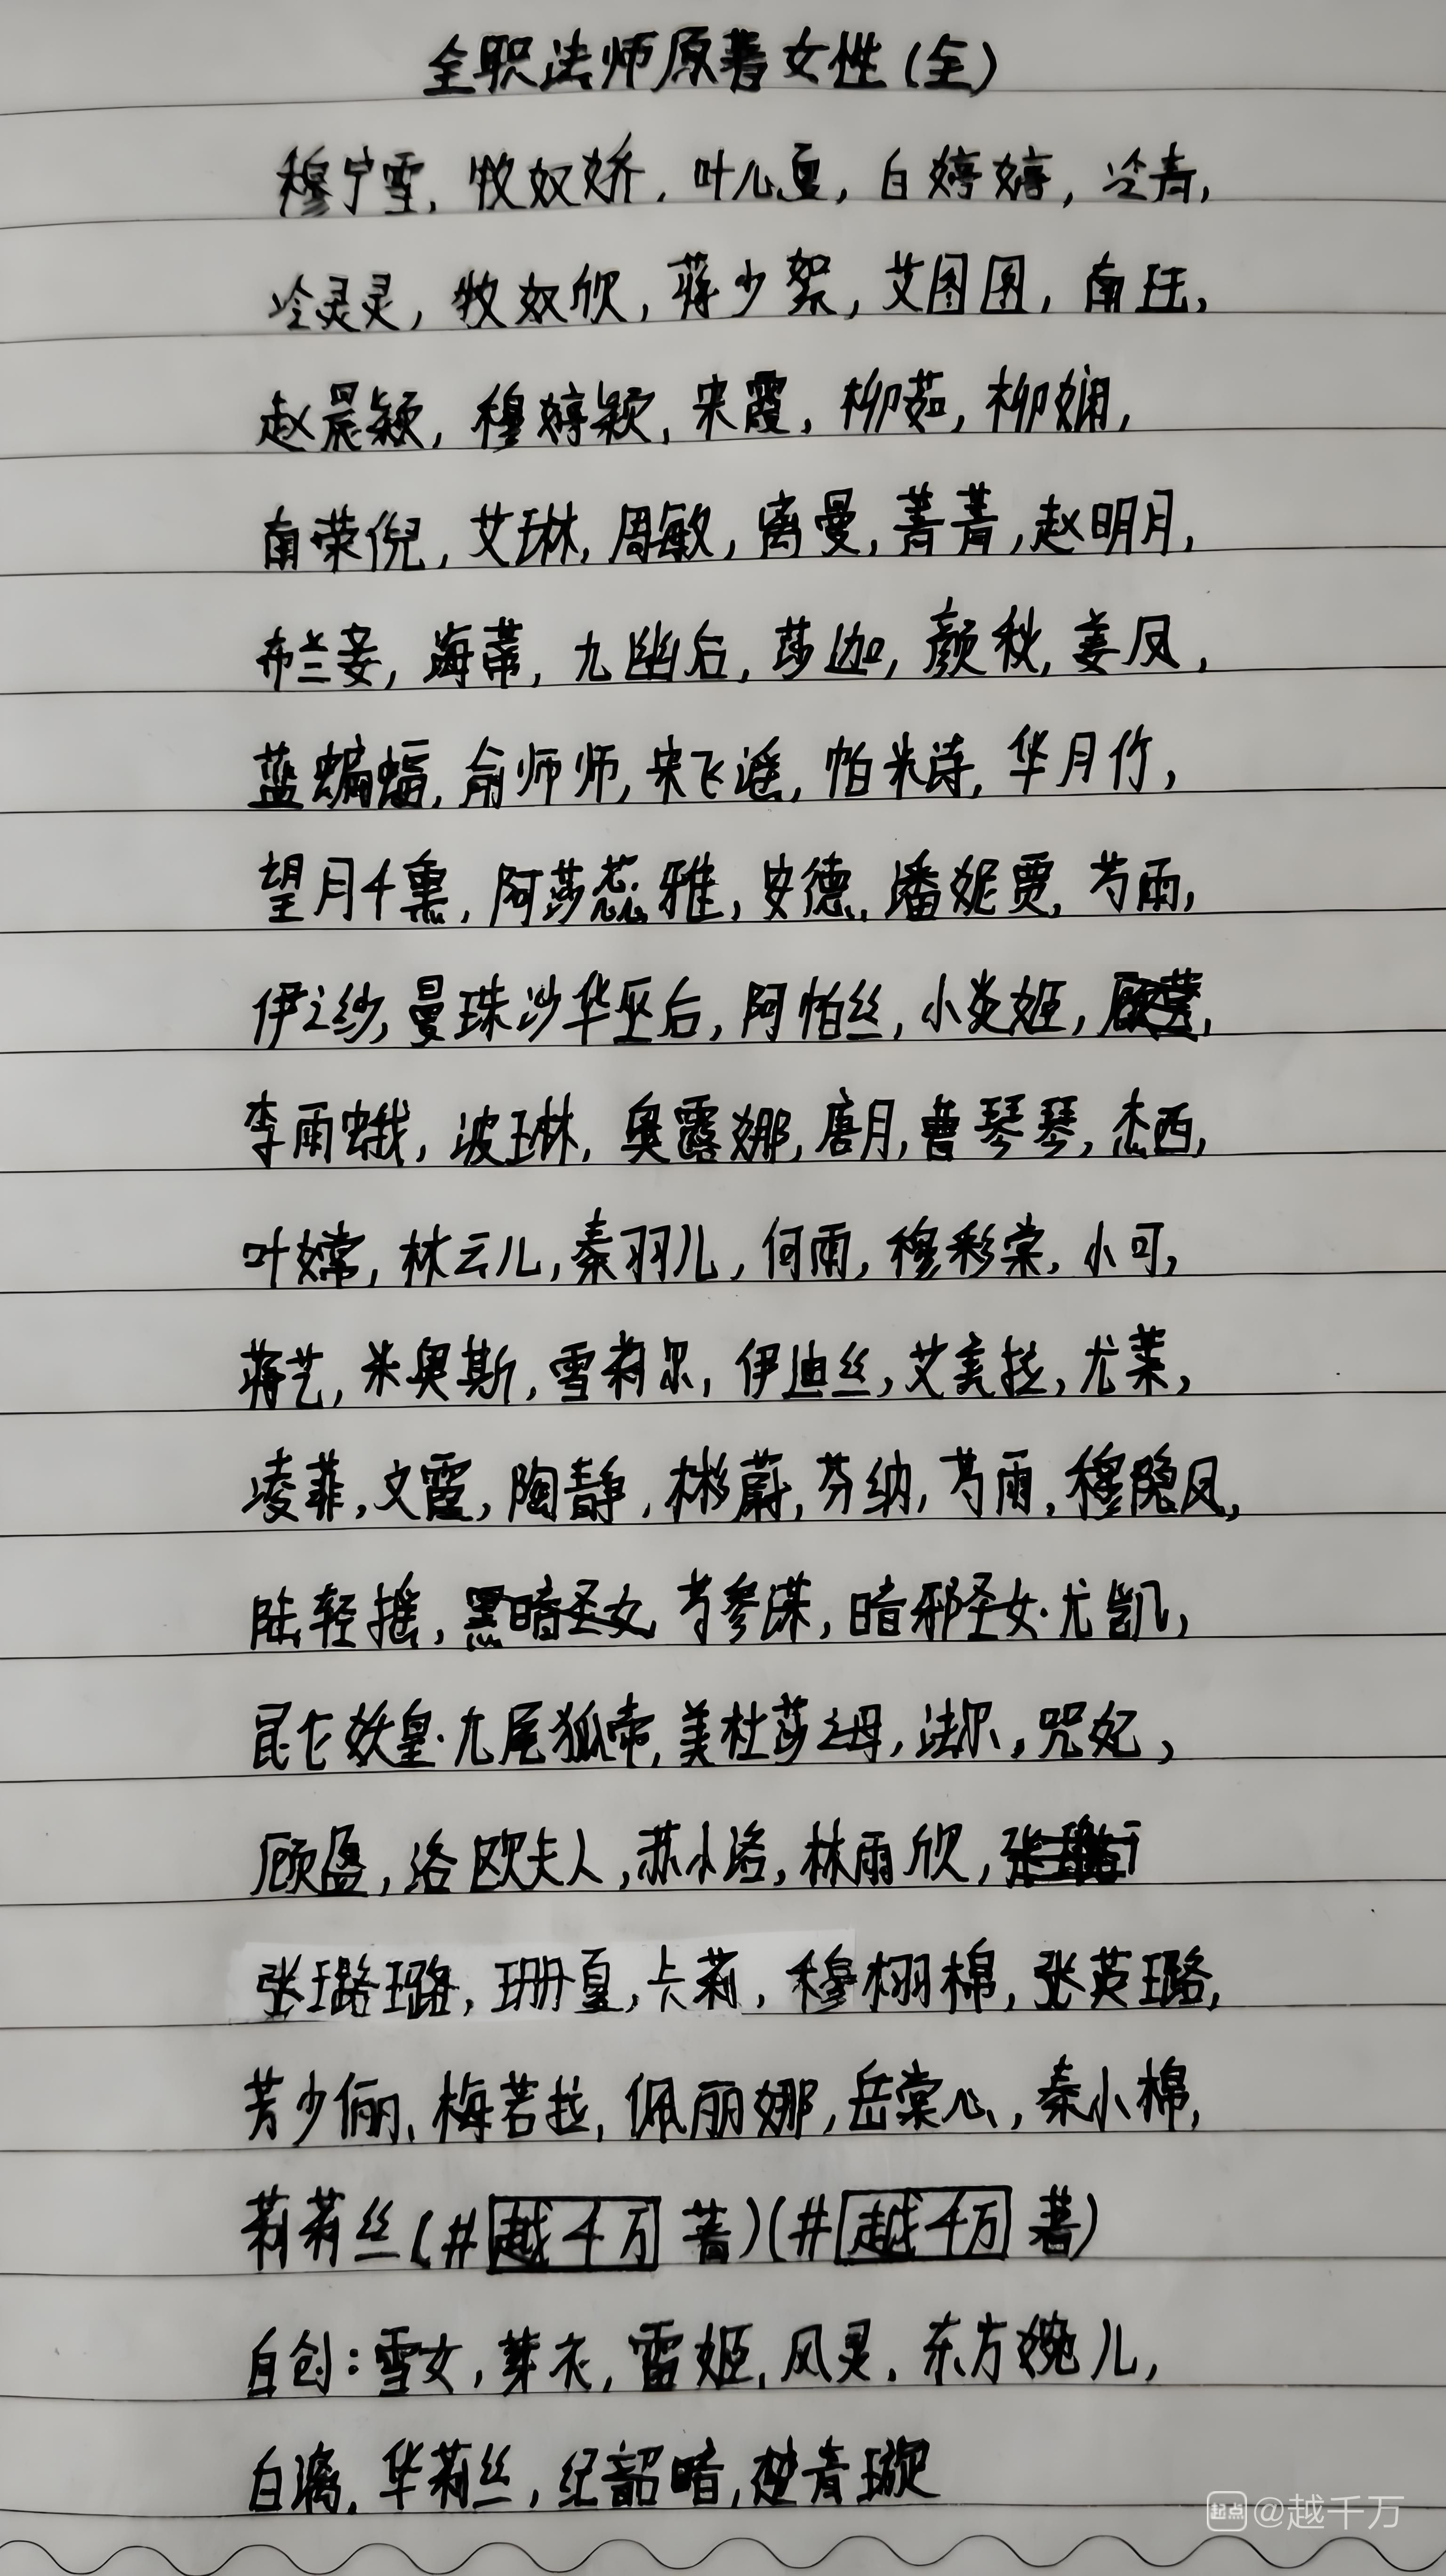 全职法师原著女性(全)
穆宁雪,牧奴娇,叶心夏,白婷婷,冷青,
冷灵灵,牧奴欣,蒋少絮,艾图图,南珏,
赵晨颖,穆婷颖,宋霞,柳茹,柳娴,
南荣倪,艾琳,周敏,离曼,菁菁,赵明月,
布兰妾,海蒂,九幽后,莎迦,颜秋,姜凤,
蓝蝙蝠,俞师师,宋飞谣,帕米诗,华月竹,
望月千熏,阿莎蕊雅,安德,潘妮贾,芍雨,
伊之纱,曼珠沙华巫后,阿帕丝,小炎姬,
李雨蛾,波琳,奥露娜,唐月,曹琴琴,杰西,
叶嫦,林云儿,秦羽儿,何雨,穆彩棠,小可,
蒋艺,米奥斯,雪莉尔,伊迪丝,艾美拉,尤莱,
凌菲,文霞,陶静,彬蔚,芬纳,芍雨,穆隐凤,
陆轻摇,黑暗圣女 芍参谋,暗邪圣女·尤凯,
昆仑妖皇·九尾狐帝,美杜莎之母,法尔,咒妃,
顾盈,洛欧夫人,苏小洛,林雨欣,
张璐璐,珊夏,卡莉,穆栩棉,张英璐,
芳少俪,梅若拉,佩丽娜,岳棠心,秦小棉,
莉莉丝(#越千万 著)(#越千万 著)
自创:雪女,芽衣,雷姬,风灵,东方婉儿,
白漓,华莉丝,纪韶暗,楚青璇
起点@越千万